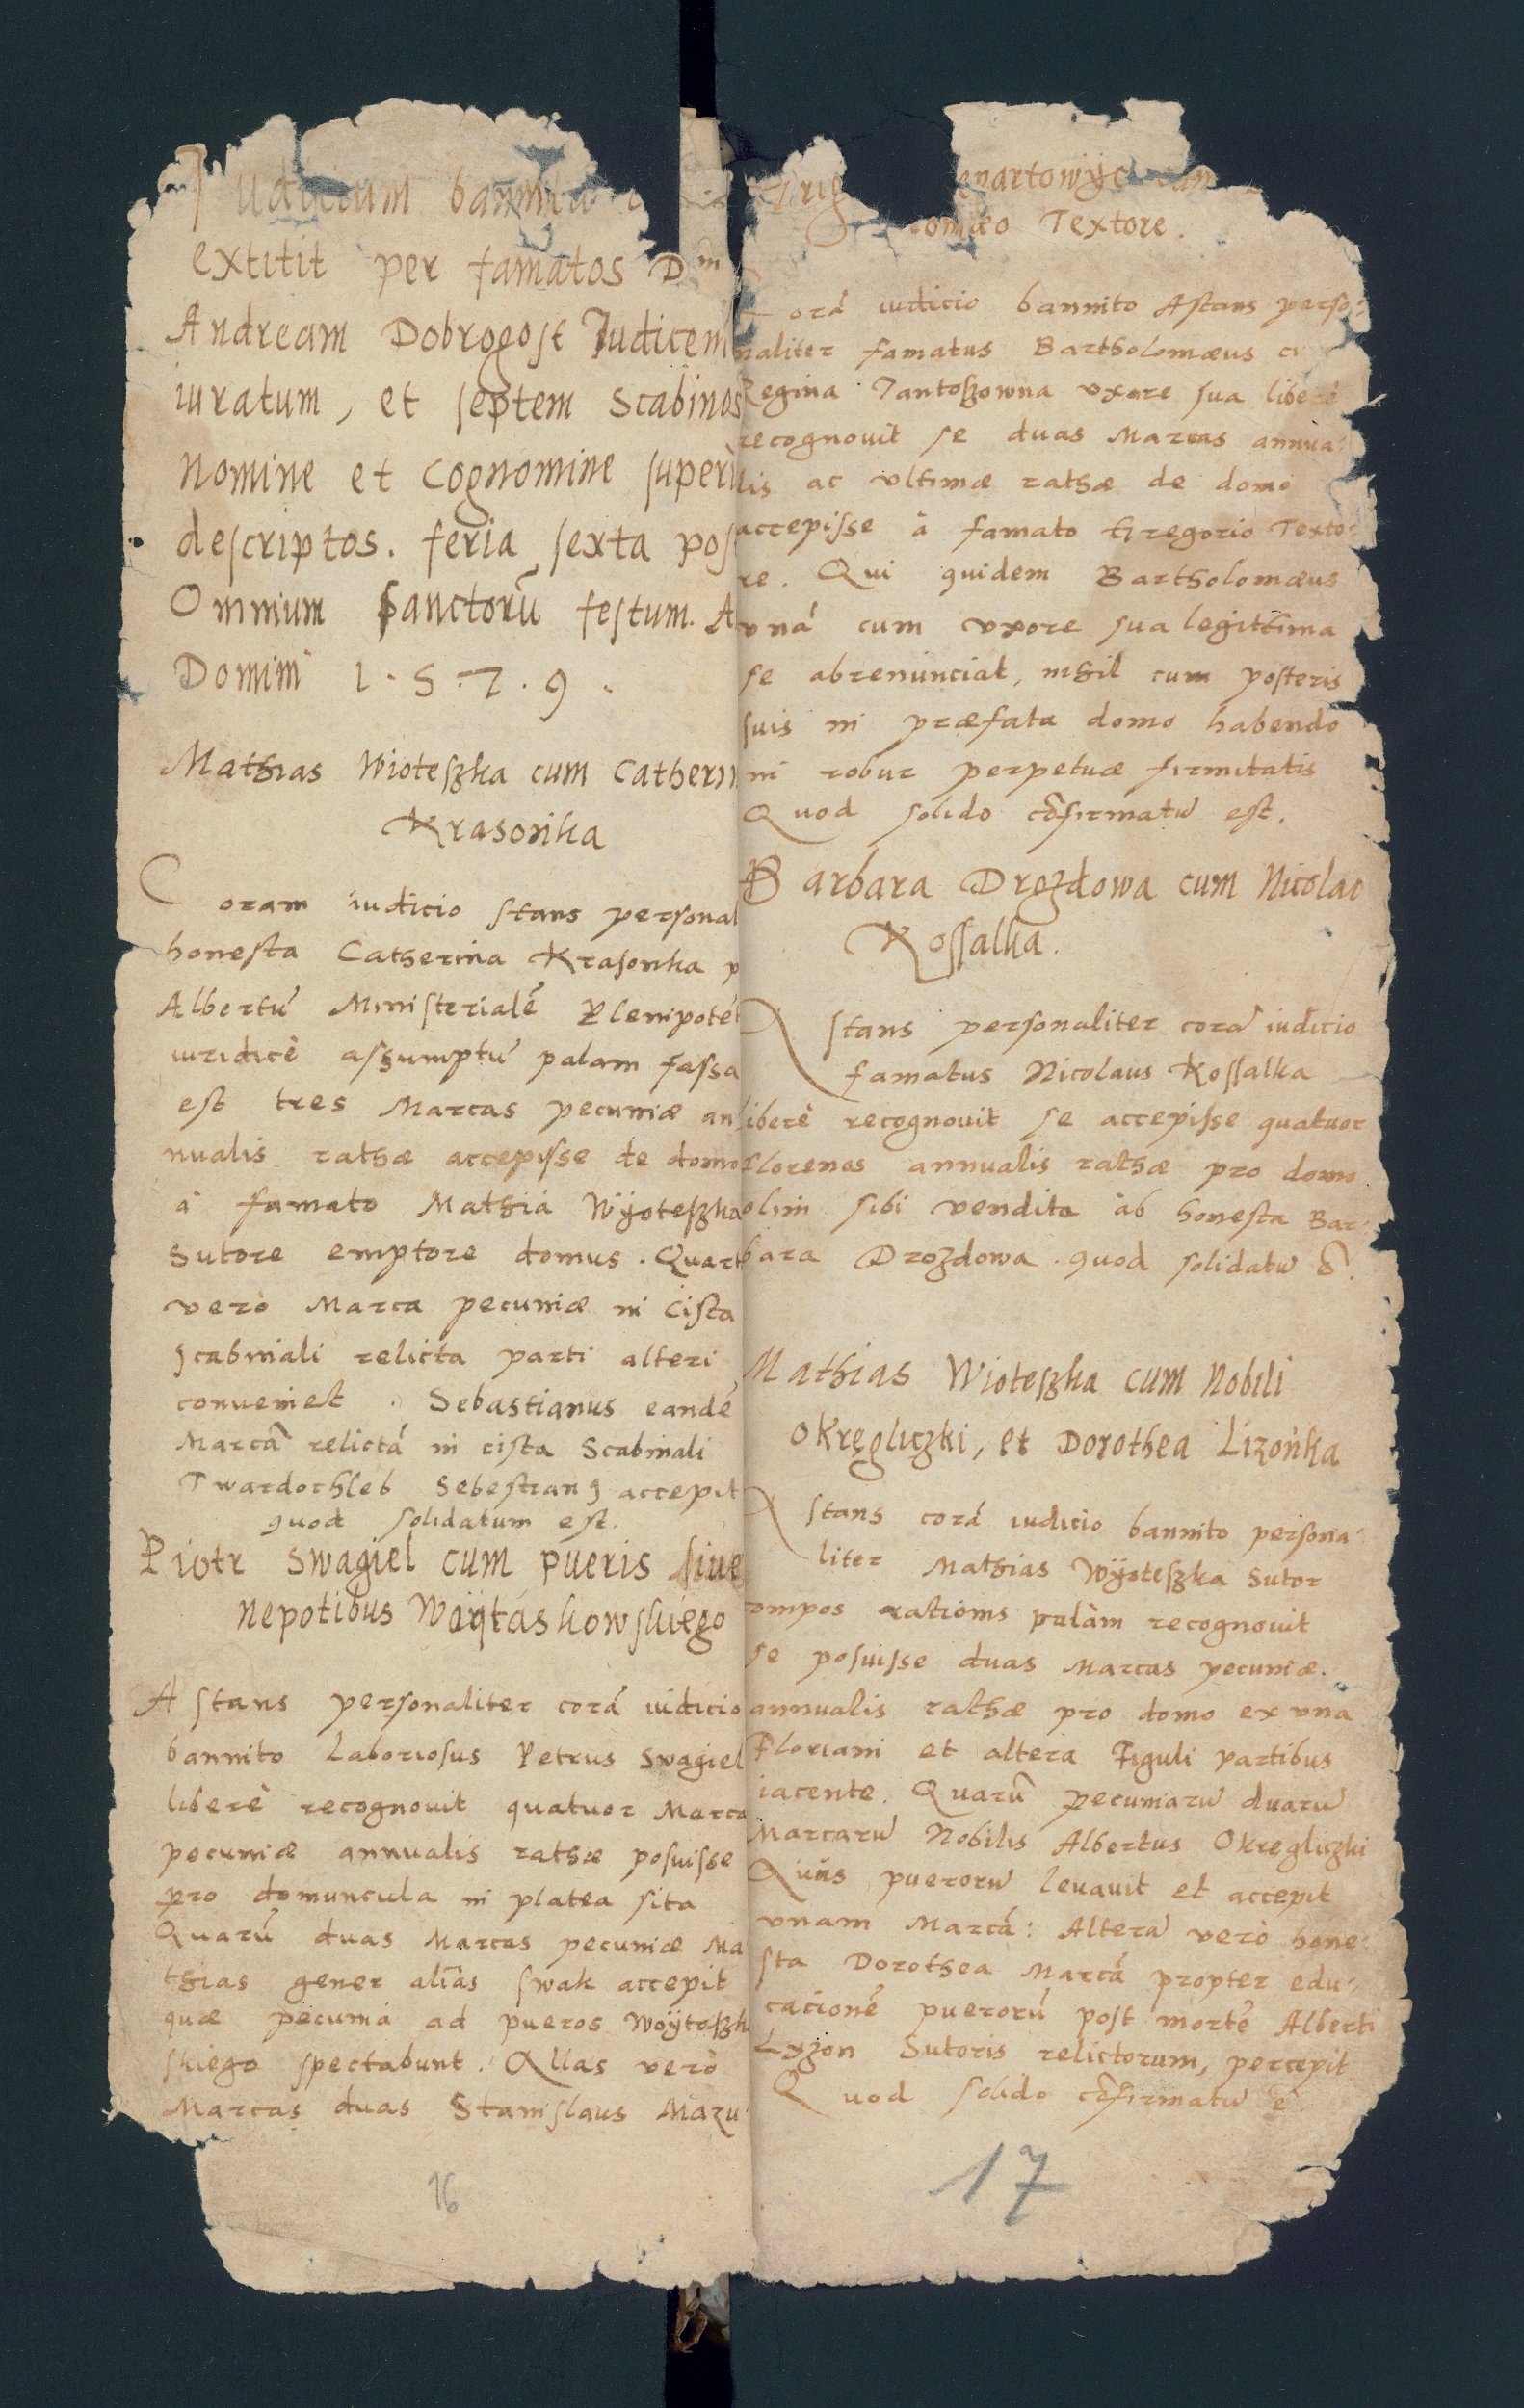 Iudicium bannitu
extitit per famatos Dm̄
Andream Dobrogost Iudicem
iuratum, et septem Scabinos
Nomine et Cognomine superi
descriptos. feria sexta pos
Omnium Sanctorū festum. A
Domini 1.5.7.9.
Mathias Wioteszka cum Catherin
Krasonka
Coram iudicio stans personal
honesta Catherina Krasonka p
Albertū Ministerialē Plenipotēt
iuridicè assumptū palam fassa
est tres Marcas pecuniæ an
nualis rathæ accepisse de domo
à famato Mathia Wÿoteszka
Sutore emptore domus. Quart
vero Marca pecuniæ in Cista
Scabinali relicta parti alteri
conveniet. Sebastianus eandē
Marcā relictā in cista Scabinali
Twardochleb Sebestian9 accepit
quod solidatum est.
Piotr Swagiel cum pueris siue
nepotibus Woÿtaskowskiego
Astans personaliter corā iudicio
bannito Laboriosus Petrus Swagiel
liberè recognouit quatuor Marca
pecuniæ annualis rathæ posuisse
pro domuncula in platea sita
Quarū duas Marcas pecuniæ Ma
thias gener aliàs swak accepit
quæ pecunia ad pueros Woÿtaszk
skiego spectabunt. Alias verò
Marcas duas Stanislaus Mazu
16
enartowÿc
omæo Textore.
Corā iudicio bannito Astans perso:
naliter famatus Bartholomæus
Regina Jantoszowna vxore sua liberè
recognouit se duas Marcas annua:
lis ac vltimæ rathæ de domo
accepisse à famato Gregorio Texto:
re. Qui quidem Bartholomæus
vnà cum vxore sua legittima
se abrenunciat, nihil cum posteris
suis in præfata domo habendo
in robur perpetuæ firmitatis
Quod solido cōfirmatū est.
Barbara Drozdowa cum Nicolao
Kossalka.
Astans personaliter corā iudicio
famatus Nicolaus Kossalka
liberè recognouit se accepisse quatuor
florenos annualis rathæ pro domo
olim sibi vendita ab honesta Bar:
bara Drozdowa. quod solidatū ē.
Mathias Wioteszka cum Nobili
Okręgliczki, et Dorothea Lizońka
Astans corā iudicio bannito persona:
liter Mathias Wÿoteszka Sutor
compos rationis palàm recognouit
se posuisse duas Marcas pecuniæ.
annualis rathæ pro domo ex vna
Floriani et altera Figuli partibus
iacente. Quarū pecuniarū duarū
Marcarū Nobilis Albertus Okręgliczki
puerorū leuauit et accepit
vnam Marcā: Alterā verò hone:
sta Dorothea Marcā propter edu:
cacionē puerorū post mortē Alberti
Lyzon Sutoris relictorum, percepit
Quod solido cōfirmatū ē.
17